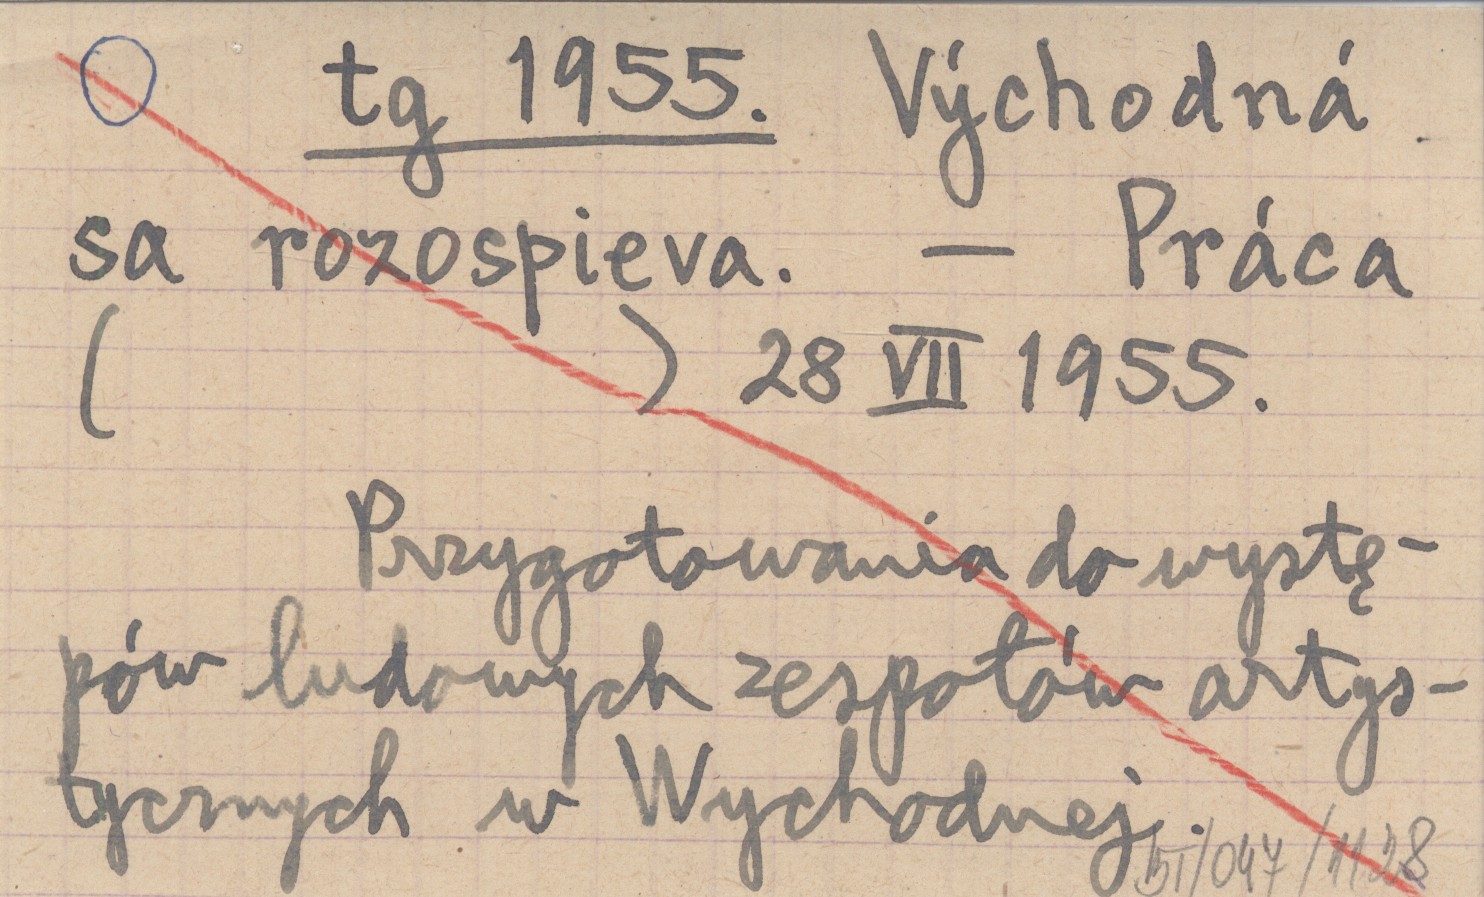 tg 1955. Východná
sa rozospieva. — Práca
(                ) 28 VII 1955.
Przygotowania do wystę-
pów ludowych zespołów artys-
tycznych w Wychodnej.
/047/1128